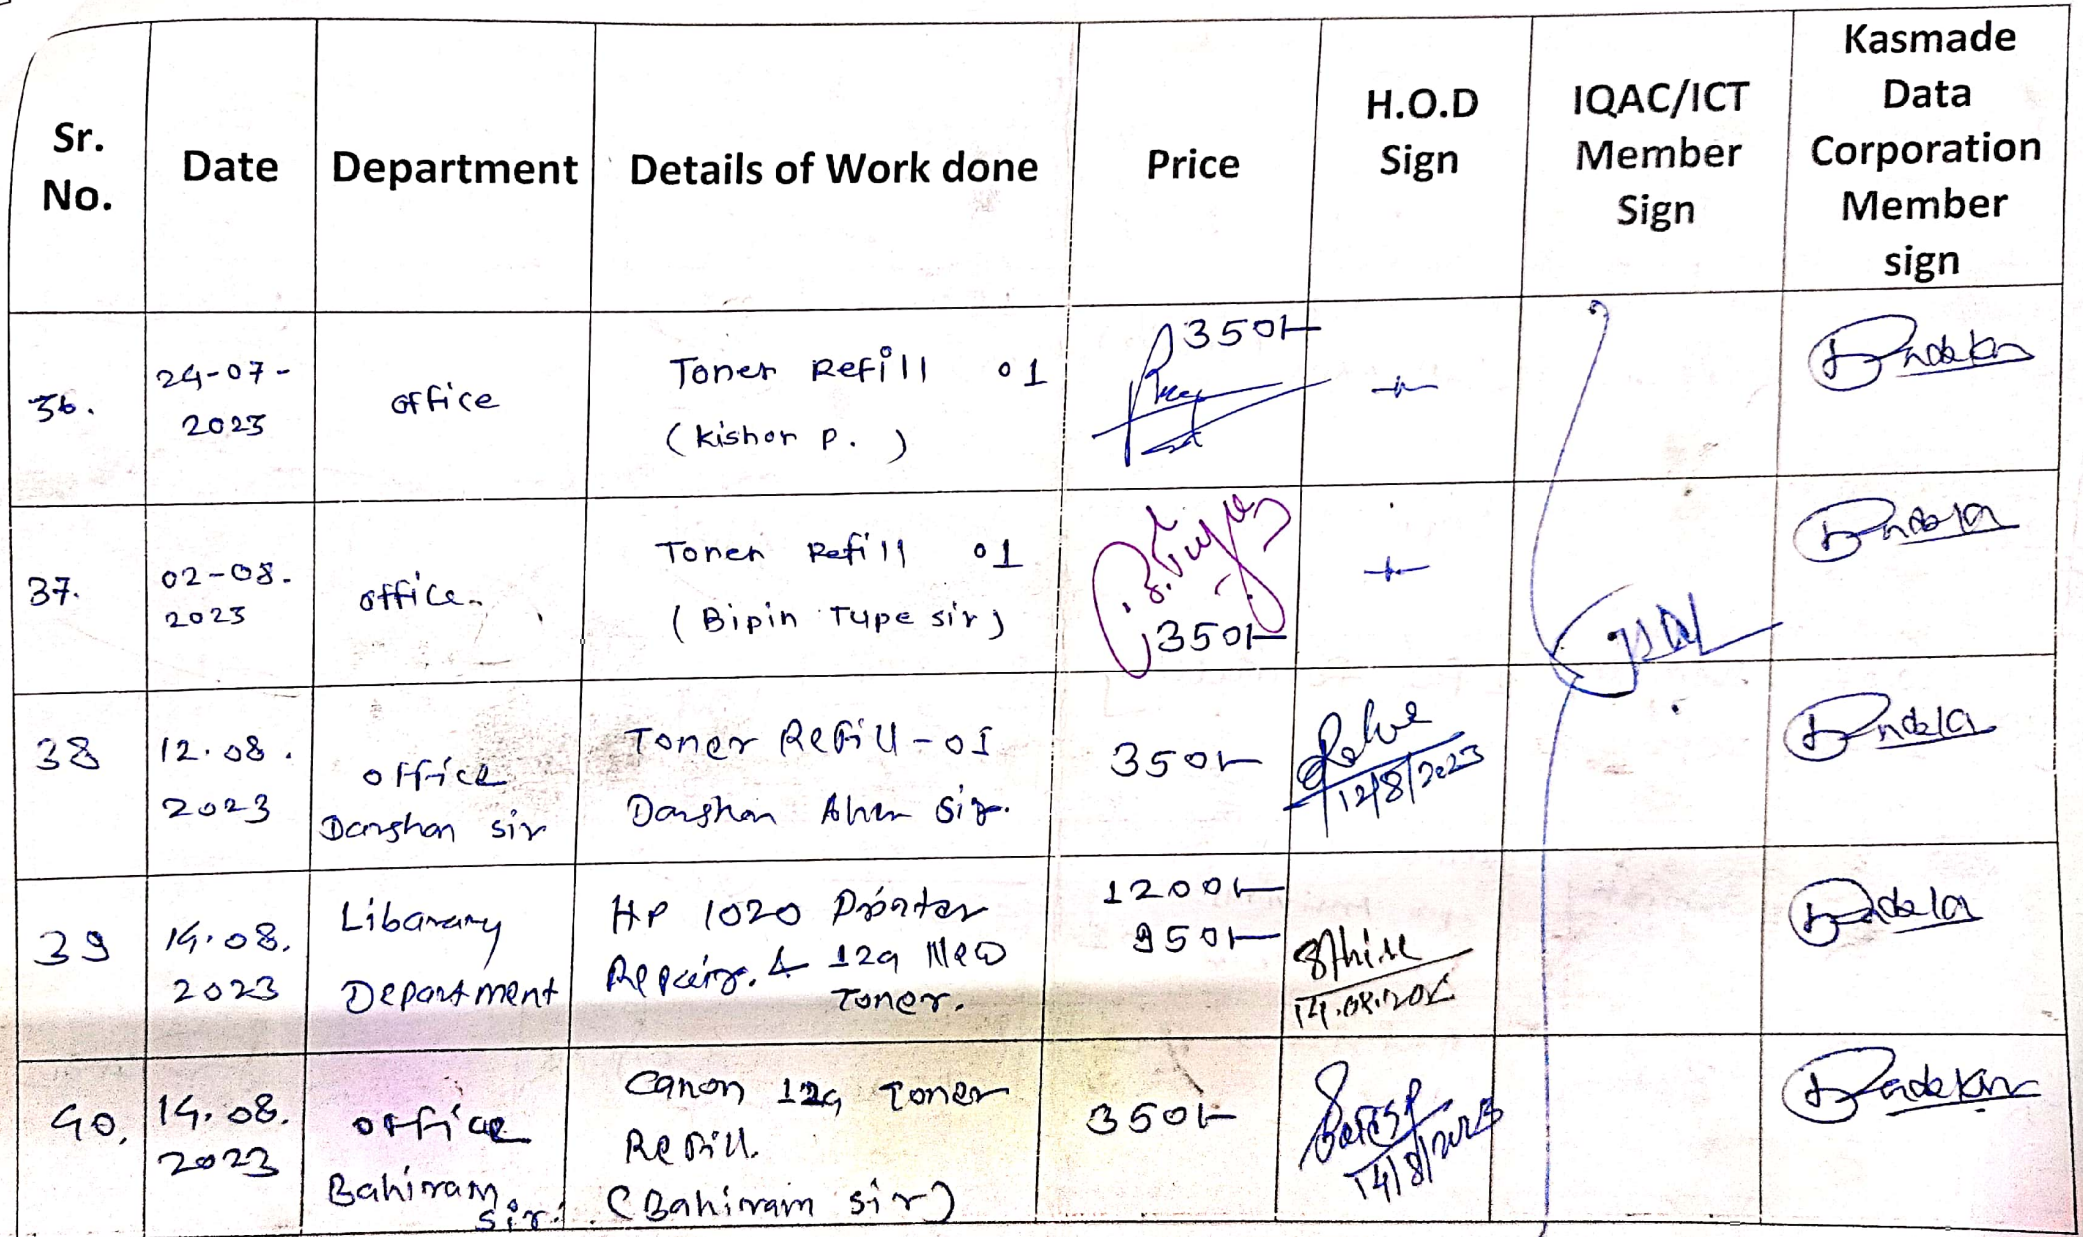 Sr. No.
Date
Department
Details of Work done
Price
H.O.D Sign
IQAC/ICT Member Sign
Kasmade Data Corporation Member sign
36.
24-07-
2023
office
Toner Refill 01
(Kishor P. )
350/-
37.
02-08.
2023
office.
Toner Refill 01
(Bipin Type sir)
350/-
38
12.08.
2023
office
Darshan sir
Toner Refill-01
Darshan Aher Sir.
350/-
12/8/2023
39
14.08.
2023
Libarary
Department
HP 1020 Printer
Repair. & 12a New
Toner.
1200/-
950/-
40.
14.08.
2023
office
Bahiram
sir.
Canon 12a Toner
Refill.
(Bahiram sir)
350/-
14/8/2023